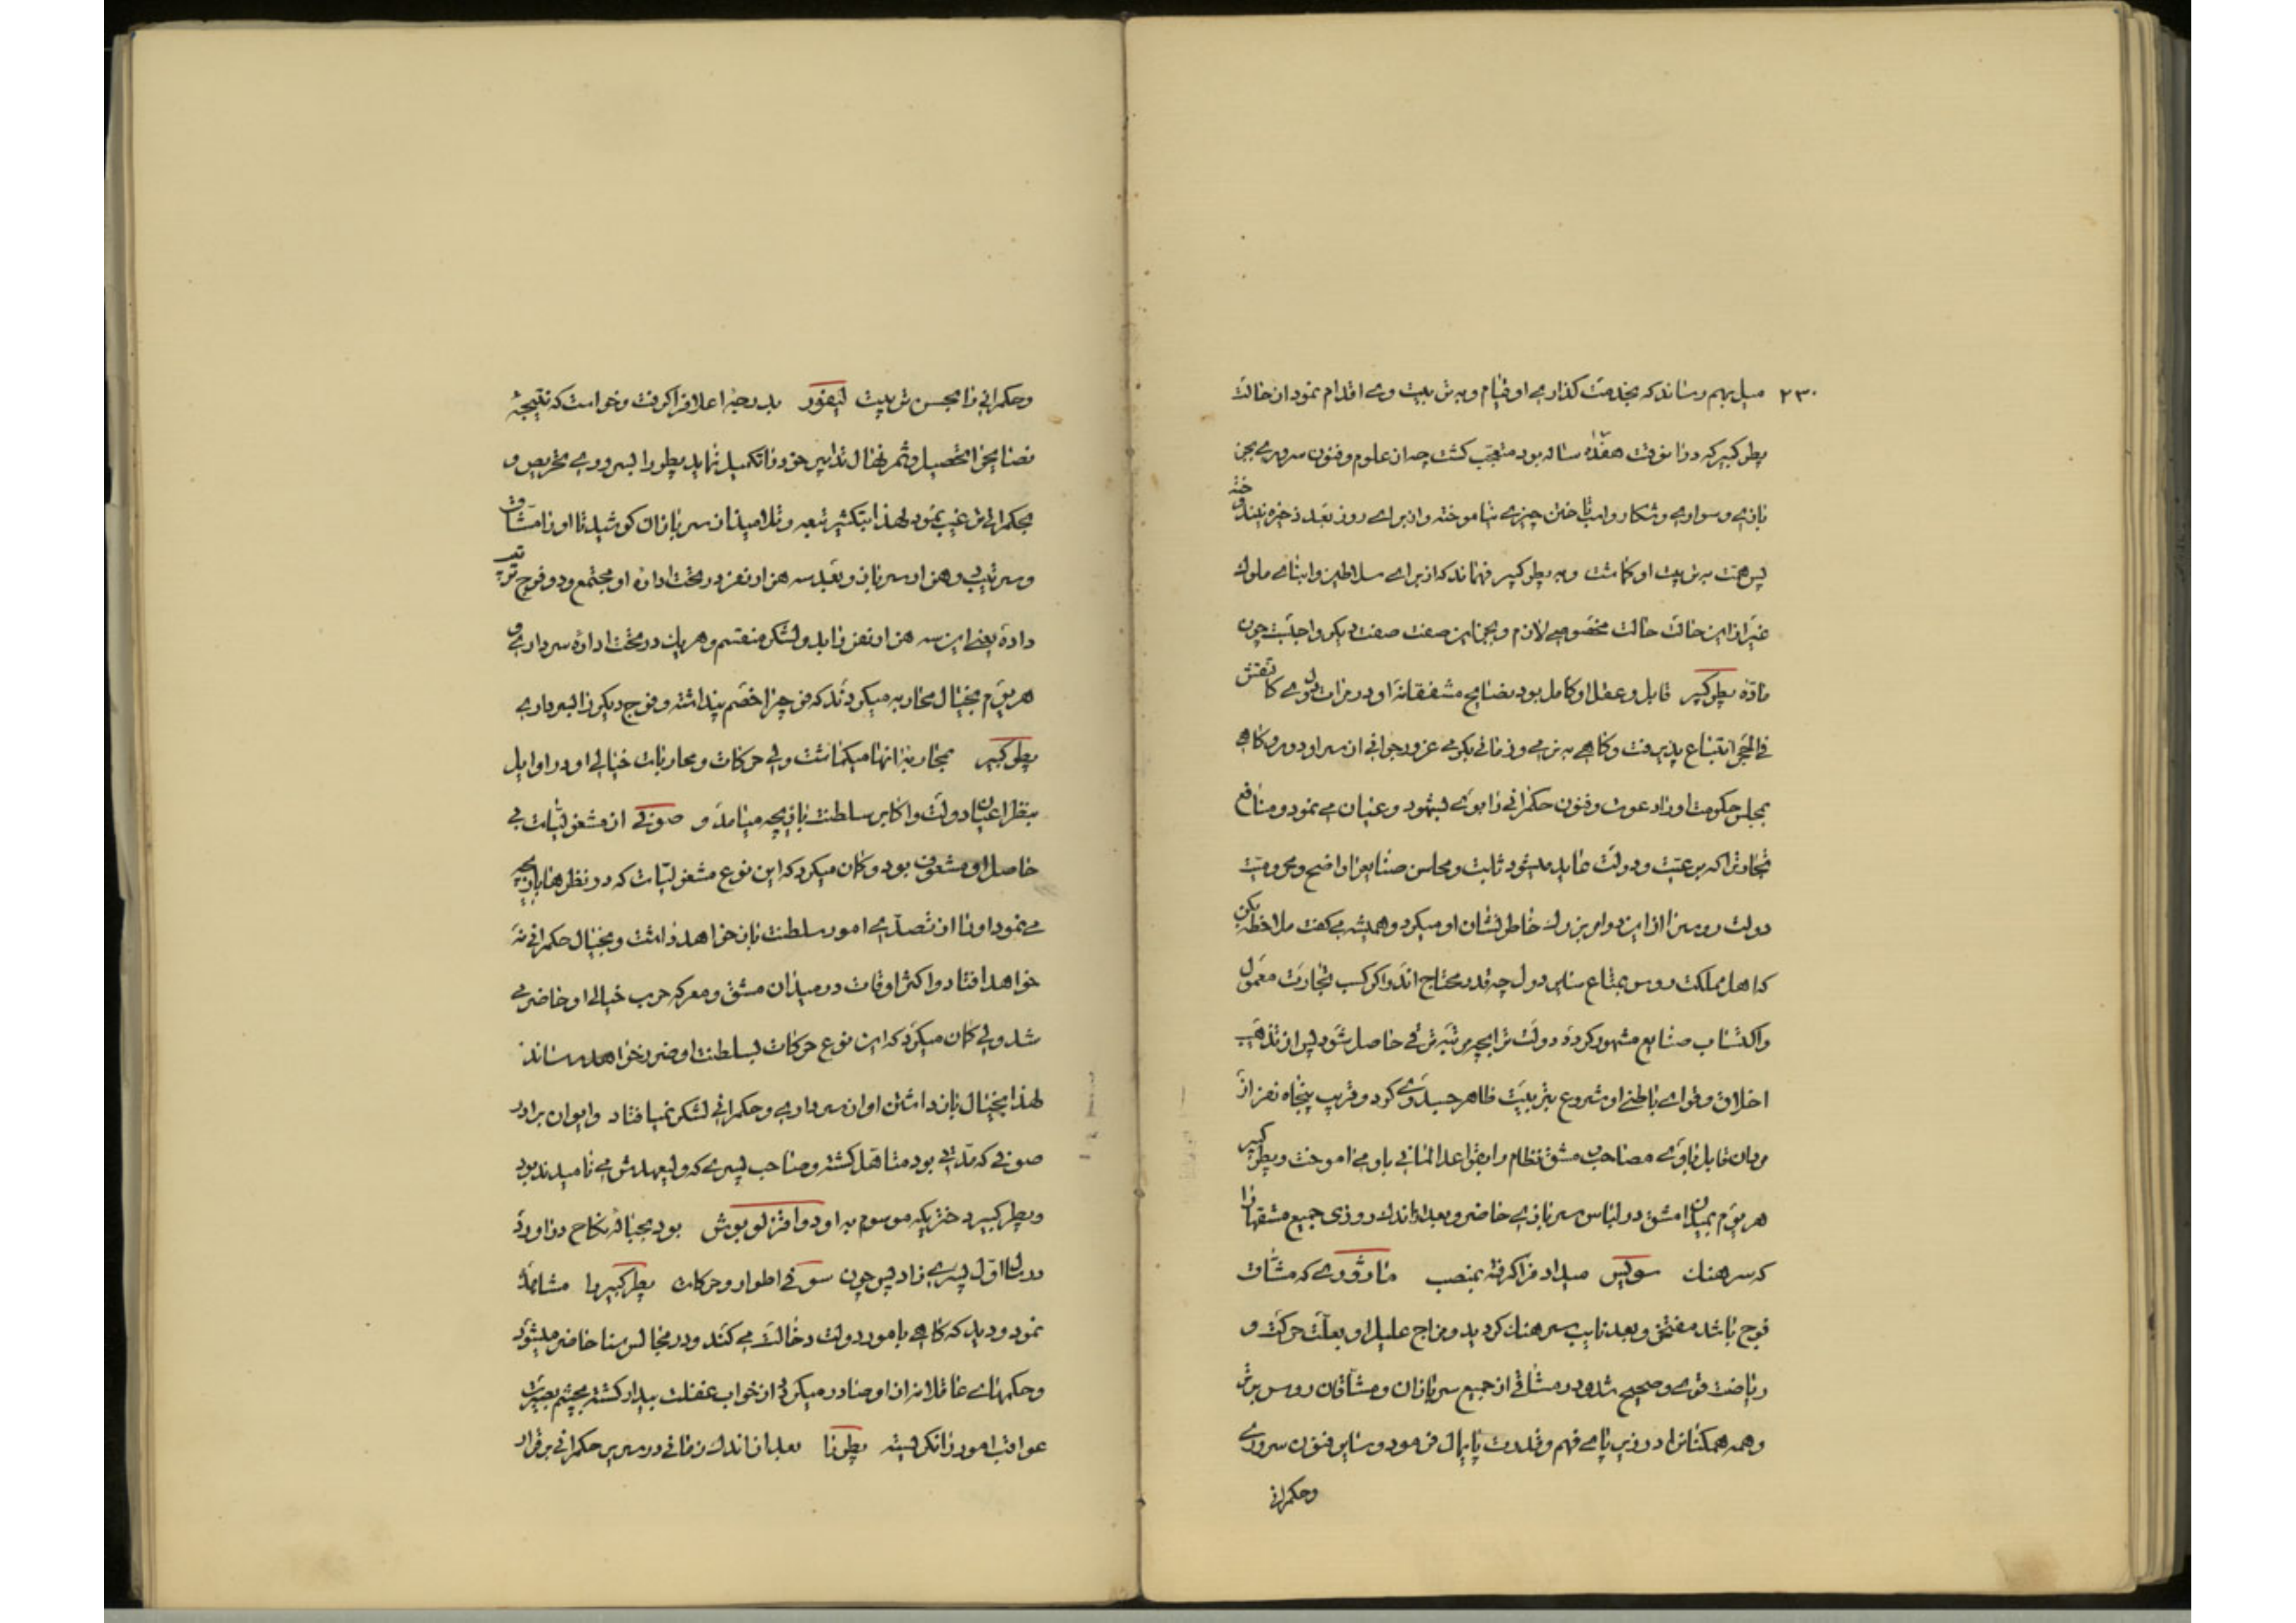 ۲۳۰ میل بهم رساند که بخدمت گذاری او قیام و به تربیت وی اقدام نمود از حالت
پطر کبیر که در آنوقت هفده ساله بود متعجب گشت چه از علوم و فنون سروری بجز
بازی و سواری و شکار و اسب تاختن چیزی نیاموخته و از برای روز بعد ذخیره نیندوخته
پس همت به تربیت او گماشت و به پطر کبیر فهماند که از برای سلاطین و ابنای ملوک
غیر از این حالت حالت مخصوصی لازم و بجز این صفت صفت دیگر واجبست چون
ماده پطر کبیر قابل و عقل او کامل بود نصایح مشفقانه او در مرات دل وی کالنقش
فی الحجر انتباع پذیرفت و گاهی به نرمی و زمانی بگرمی غرور جوانی از سر او دور و گاهی
بمجلس حکومت او را دعوت و فنون حکمرانی را بوی مشهود و عیان می نمود و منافع
تجارت را که برعیت و دولت عاید میشود ثابت و محاسن صنایع را واضح و محرومیت
دولت روس را از این دو امر بزرگ خاطر نشان او میکرد و همیشه می گفت ملاحظه کن
که اهل مملکت روس بمتاع سایر دول چه قدر محتاج اند و اگر کسب تجارت معمول
و اکتساب صنایع مشهور کردد دولت را بچه مرتبه ترقی حاصل شود پس از تذهیب
اخلاق و قوای باطنی او شروع بتربیت ظاهر جسد وی کرد و قریب پنجاه نفر از
مردان قابل با وی مصاحب مشق نظام را بقواعد المانی باو می اموخت و پطر کبیر
هر یوم بمیدان مشق در لباس سربازی حاضر و بعد از اندک روزی جمیع مشقها را
که سرهنگ سویس میداد فرا گرفته بمنصب که مشاق
فوج باشد مفتخر و بعد نایب سرهنگ گردید و مزاج علیل او بعلت حرکت و
ریاضت قوی و صحیح شد و در مشاقی از جمیع سربازان و مشاقان روس برتر
و همه همگنان را در زیر پای فهم و قدرت پایمال فرمود و سایر فنون سروری
و حکمرانی
و حکمرانی را بحسن تربیت لیفور بدرجه اعلا فرا گرفت و خواست که نتیجه
نصایح را تحصیل و ثمر نهال تدابیر خود را تکمیل نماید پطر را بسروری تحریص و
بحکمرانی ترغیب نمود لهذا بتکثیر تبعه و تلامیذ از سربازان کوشید تا او را مشاق و
و سرتیپ و هزار سرباز و بعد سه هزار نفر در تحت اداره او مجتمع و دو فوج ترتیب
داده یعنی این سه هزار نفر را بدو لشکر منقسم و هر یک در تحت اداره سرداری و
هر یوم بخیال محاربه میگردند که فوجی را خصم پنداشته و فوج دیگر را بسرداری
پطر کبیر بمحاربه آنها میگماشت ولی حرکات و محاربات خیالی او در اوایل
بنظر اعیان دولت و اکابر سلطنت بازیچه مینامد و صوفی از مشغولیات بی
حاصل او مشعوف بود و گمان میکرد که این نوع مشغولیات که در نظرها بازیچه
می نمود او را از تصدی امور سلطنت باز خواهد داشت و بخیال حکمرانی نه
خواهد افتاد و اکثر اوقات در میدان مشق و معرکه حرب خیالی او حاضر می
شد ولی گمان میکرد که این نوع حرکات بسلطنت او ضرر نخواهد رساند
لهذا بخیال باز داشتن او از سرداری و حکمرانی لشکر نمیافتاد و ایوان برادر
صوفی که مدتی بود متاهل گشته و صاحب پسری که ولیعهدش می نامیدند بود
و پطر کبیر دختریکه موسوم به اودوا فرلو بوش بود بحباله نکاح در اورد
در سال اول پسری زاد پس چون سوفی اطوار و حرکات پطر کبیر را مشاهده
نمود و دید که گاهی بامور دولت دخالت می کند و در مجالس سنا حاضر میشود
و حکمهای عاقلانه از او صادر میگردد از خواب غفلت بیدار گشته بچشم بصیرت
عواقب امور را نگریسته پطر را بعد از اندک زمانی در سریر حکمرانی برقرار